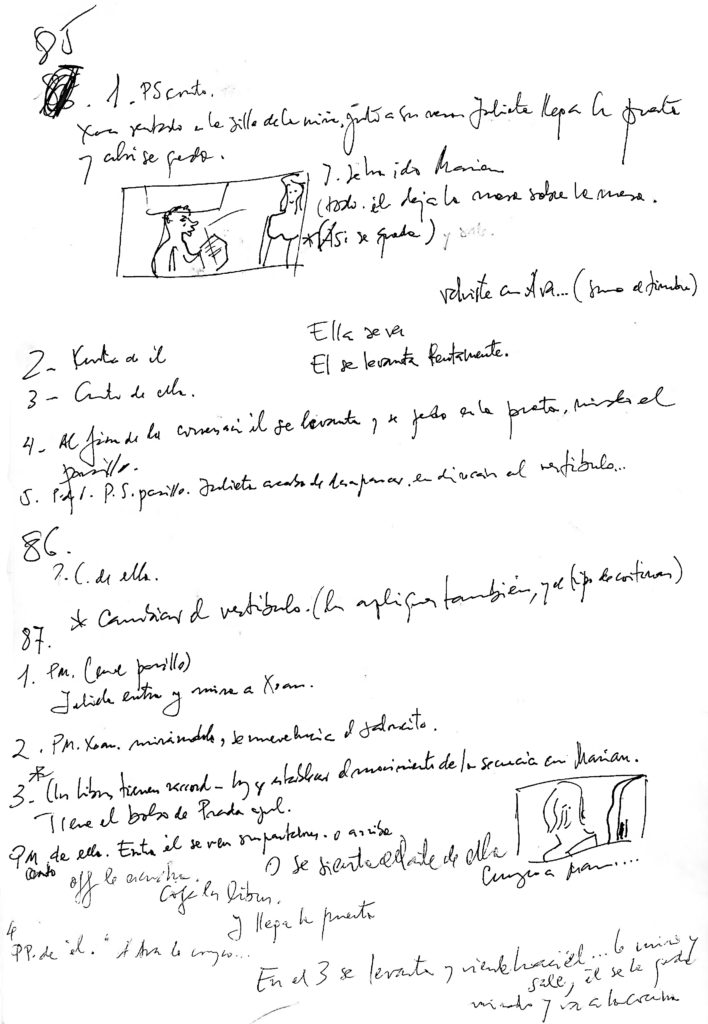 85
1. PS corto.
Xoan sentado en la silla de la niña, junto a su mesa Julieta llega la puerta
y ahí se queda.
J. Se ha ido Marian
(todo. él deja la mesa sobre la mesa.
*(Así se queda) y sale.
volviste con Ava... (suena el timbre)
Ella se va
El se levanta lentamente.
2 - de él
3 - de ella.
4 - Al fin de la él se levanta y se queda en la puerta, mirando el
pasillo.
5. P.S. pasillo. Julieta acaba de desaparecer, en dirección al vestíbulo...
86.
C. de ella.
* Cambiar el vestíbulo. (los apliques también, y el tipo de cortinas)
87.
1. PM. ( pasillo)
Julieta entra y mira a Xoan.
2. PM. Xoan. mirándola, se mueve hacia el saloncito.
3 - * (Los libros tienen raccord - hay que establecer el movimiento de la secuencia con Marian.
Tiene el bolso de Prada azul.
PM de ella. Entra él se ven sus pantalones. o arriba
corto
O se sienta delante de ella
off le escucha.
Coge los libros.
y llega la puerta
4
PP. de "él." A Ava la conozco...
En el 3 se levanta y viene hacia él... lo mira y
sale, él se la queda
mirando y va a la cocina